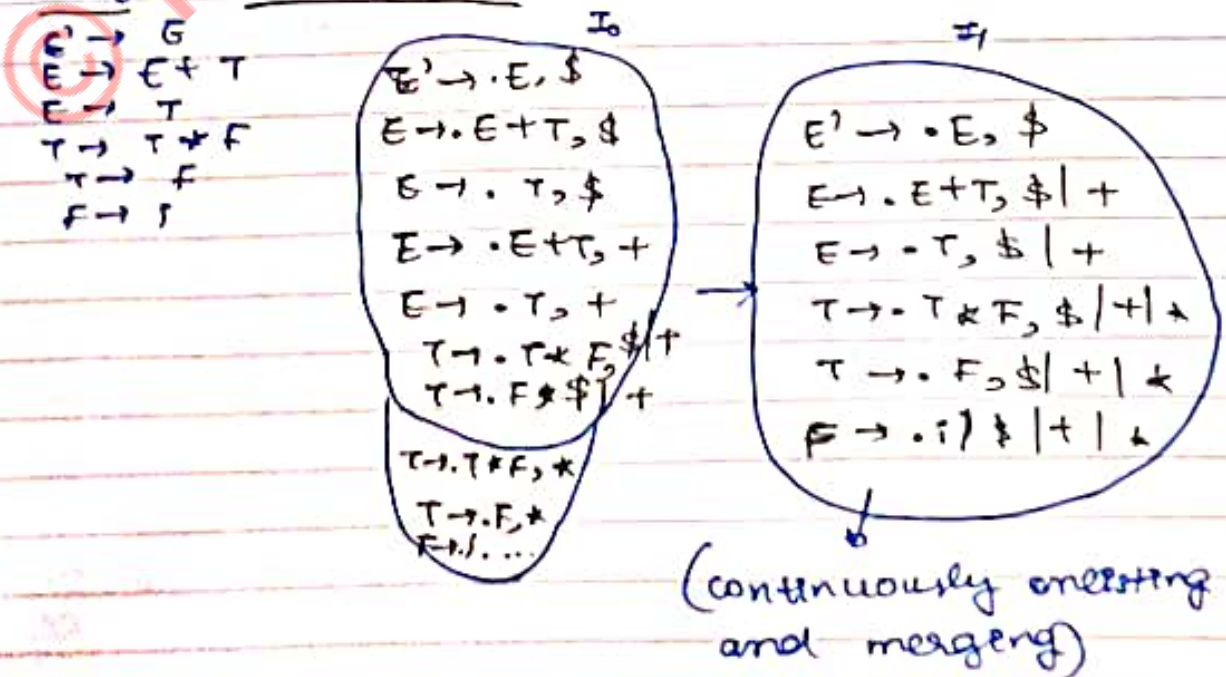 E' → E
E → E + T
E → T
T → T * F
T → F
F → i
I₀
E' → ·E, $
E → ·E + T, $
E → ·T, $
E → ·E+T, +
E → ·T, +
T → ·T* F, $|+
T → ·F, $| +
T → ·T*F, *
T → ·F, *
F → ·i, ...
I₁
E' → ·E, $
E → ·E+T, $| +
E → ·T, $ | +
T → ·T * F, $ | + | *
T → ·F, $| + | *
F → ·i, $ | + | *
(continuously
and merging)